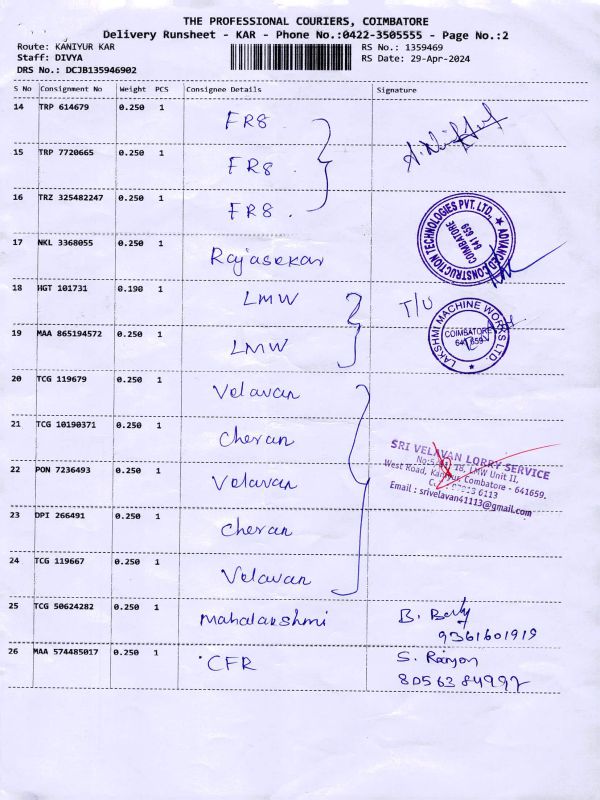 THE PROFESSIONAL COURIERS, COIMBATORE
Delivery Runsheet - KAR - Phone No.:0422-3505555 - Page No.:2
Route: KANIYUR KAR RS No.: 1359469
Staff: DIVYA RS Date: 29-Apr-2024
DRS No.: DCJB135946902
S No Consignment No Weight PCS Consignee Details Signature
14 TRP 614679 0.250 1 FR8
15 TRP 7720665 0.250 1 FR8
16 TRZ 325482247 0.250 1 FR8
ADVANCED CONSTRUCTION TECHNOLOGIES PVT. LTD.
COIMBATORE
641 659
17 NKL 3368055 0.250 1 Rajasekar
18 HGT 101731 0.190 1 LMW T/U
LAKSHMI MACHINE WORKS LTD.
COIMBATORE
641 659
19 MAA 865194572 0.250 1 LMW
20 TCG 119679 0.250 1 Velavan
21 TCG 10190371 0.250 1 Cheran
SRI VELAVAN LORRY SERVICE
18, LMW Unit II,
West Road, Kaniyur, Coimbatore - 641659.
6113
Email : srivelavan41113@gmail.com
22 PON 7236493 0.250 1 Velavan
23 DPI 266491 0.250 1 Cheran
24 TCG 119667 0.250 1 Velavan
25 TCG 50624282 0.250 1 Mahalakshmi B.
9361601919
26 MAA 574485017 0.250 1 CFR S.
8056384997